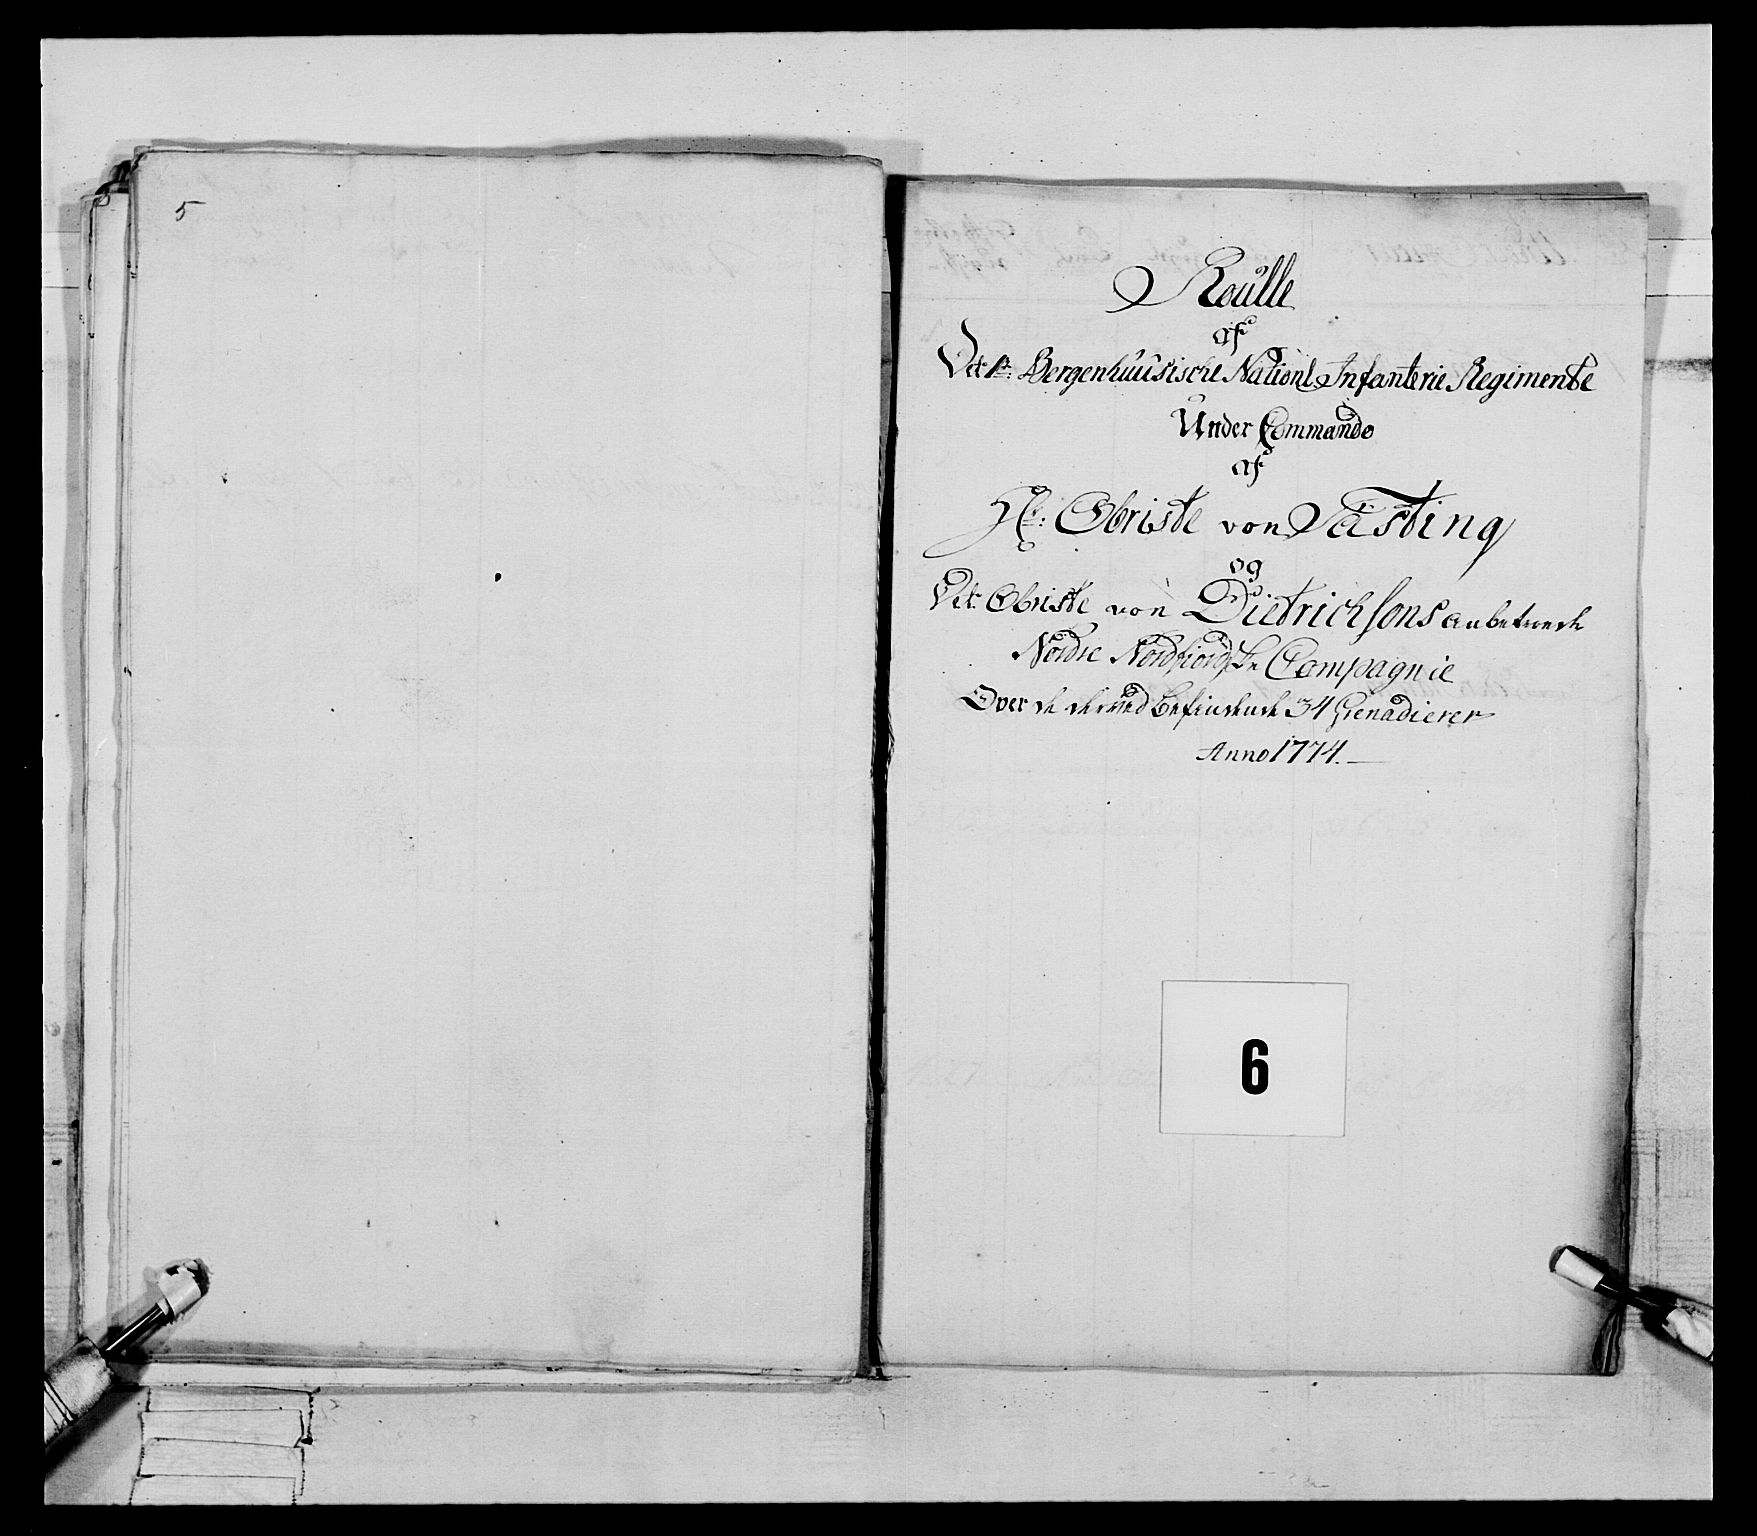 5
Roulle
af
Det 1te Bergenhuusische Nationl Infanterie Regimente
Under Commando
af
Hr: Obriste von Fästing
og
Det Obriste von Dietrichsons anbetroede
Nordre Nordfiordske Compagnie
Over de derved befindende 34 Grenadierer
Anno 1774.
6